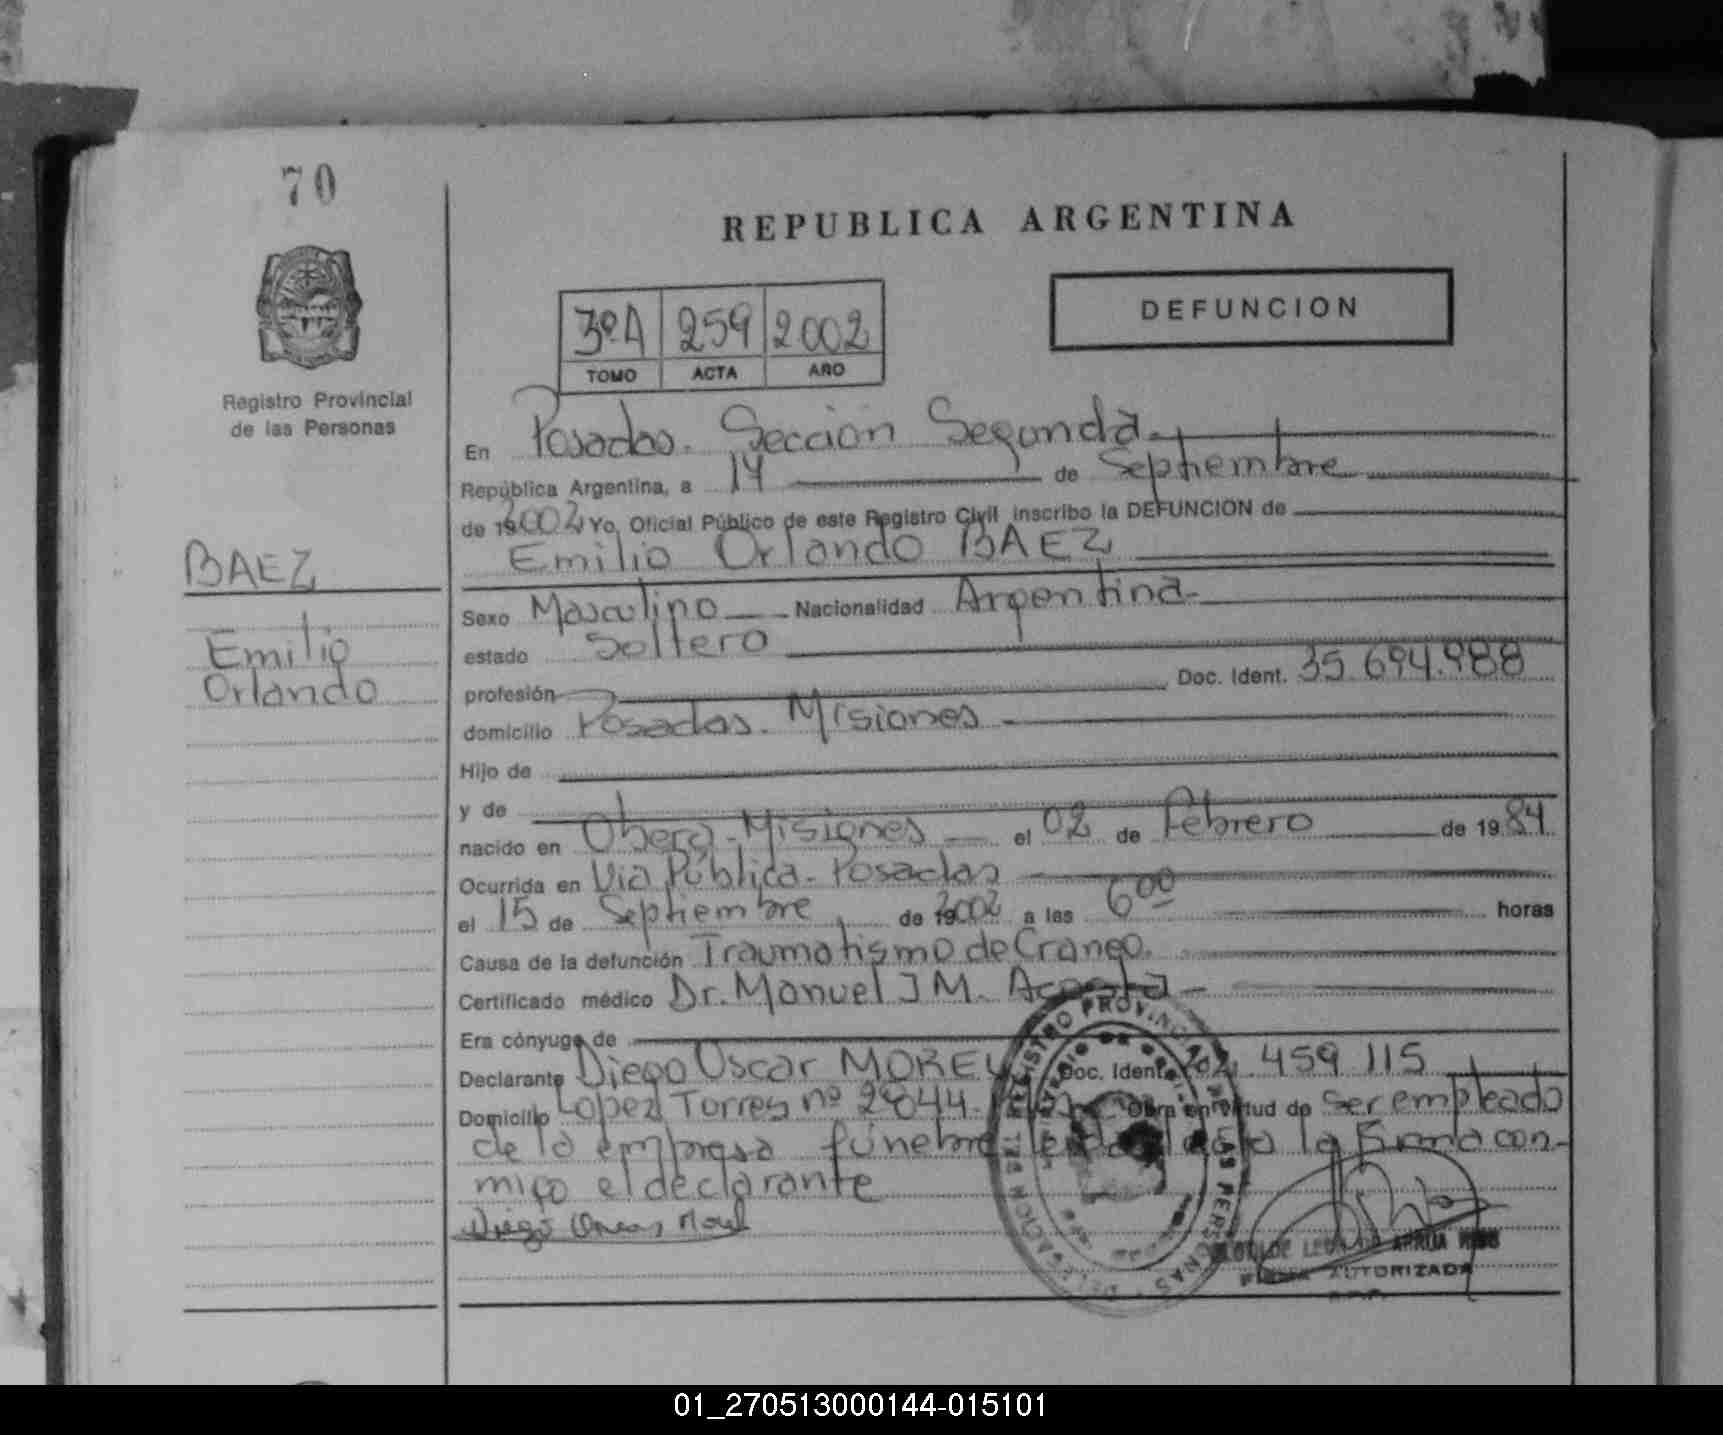 70
REPUBLICA ARGENTINA
3ºA 259 2002
TOMO ACTA AÑO
DEFUNCION
Registro Provincial
de las Personas
En Posadas. Sección Segunda
República Argentina, a 14 de Septiembre
de 2002 Yo, Oficial Público de este Registro Civil inscribo la DEFUNCION de
Emilio Orlando BAEZ
BAEZ
Emilio
Orlando
Sexo Masculino Nacionalidad Argentina
estado Soltero
profesión Doc. Ident. 35.694.988
domicilio Posadas. Misiones
Hijo de
y de
nacido en Oberá - Misiones el 02 de Febrero de 1984
Ocurrida en Via Pública - Posadas
el 15 de Septiembre de 2002 a las 6 00 horas
Causa de la defunción Traumatismo de Craneo.
Certificado médico Dr. Manuel J M. Acosta
Era cónyuge de
Declarante Diego Oscar MOREL Doc. Ident. 459.115
Domicilio Lopez Torres nº Obra en virtud de ser empleado
de la empresa fúnebre la Firma con-
migo el declarante
Diego Oscar Morel
REGISTRO PROVINCIAL DE LAS PERSONAS
DELEGACION
ARRUA
FIRMA AUTORIZADA
01_270513000144-015101